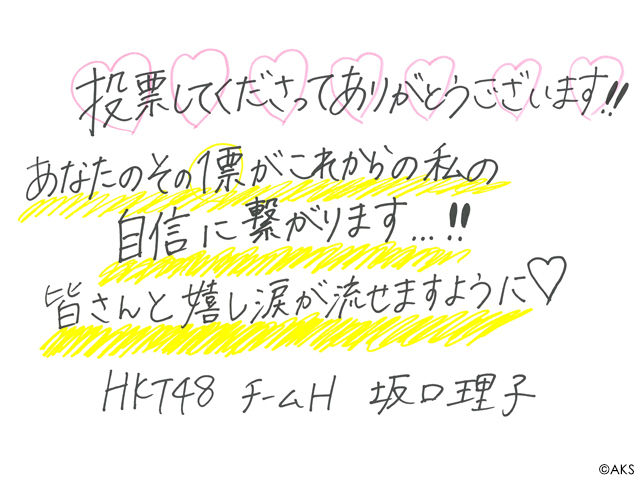 投票してくださってありがとうございます!!
あなたのその1票がこれからの私の
自信に繋がります...!!
皆さんと嬉し涙が流せますように♡
HKT48 チームH 坂口理子
©AKS